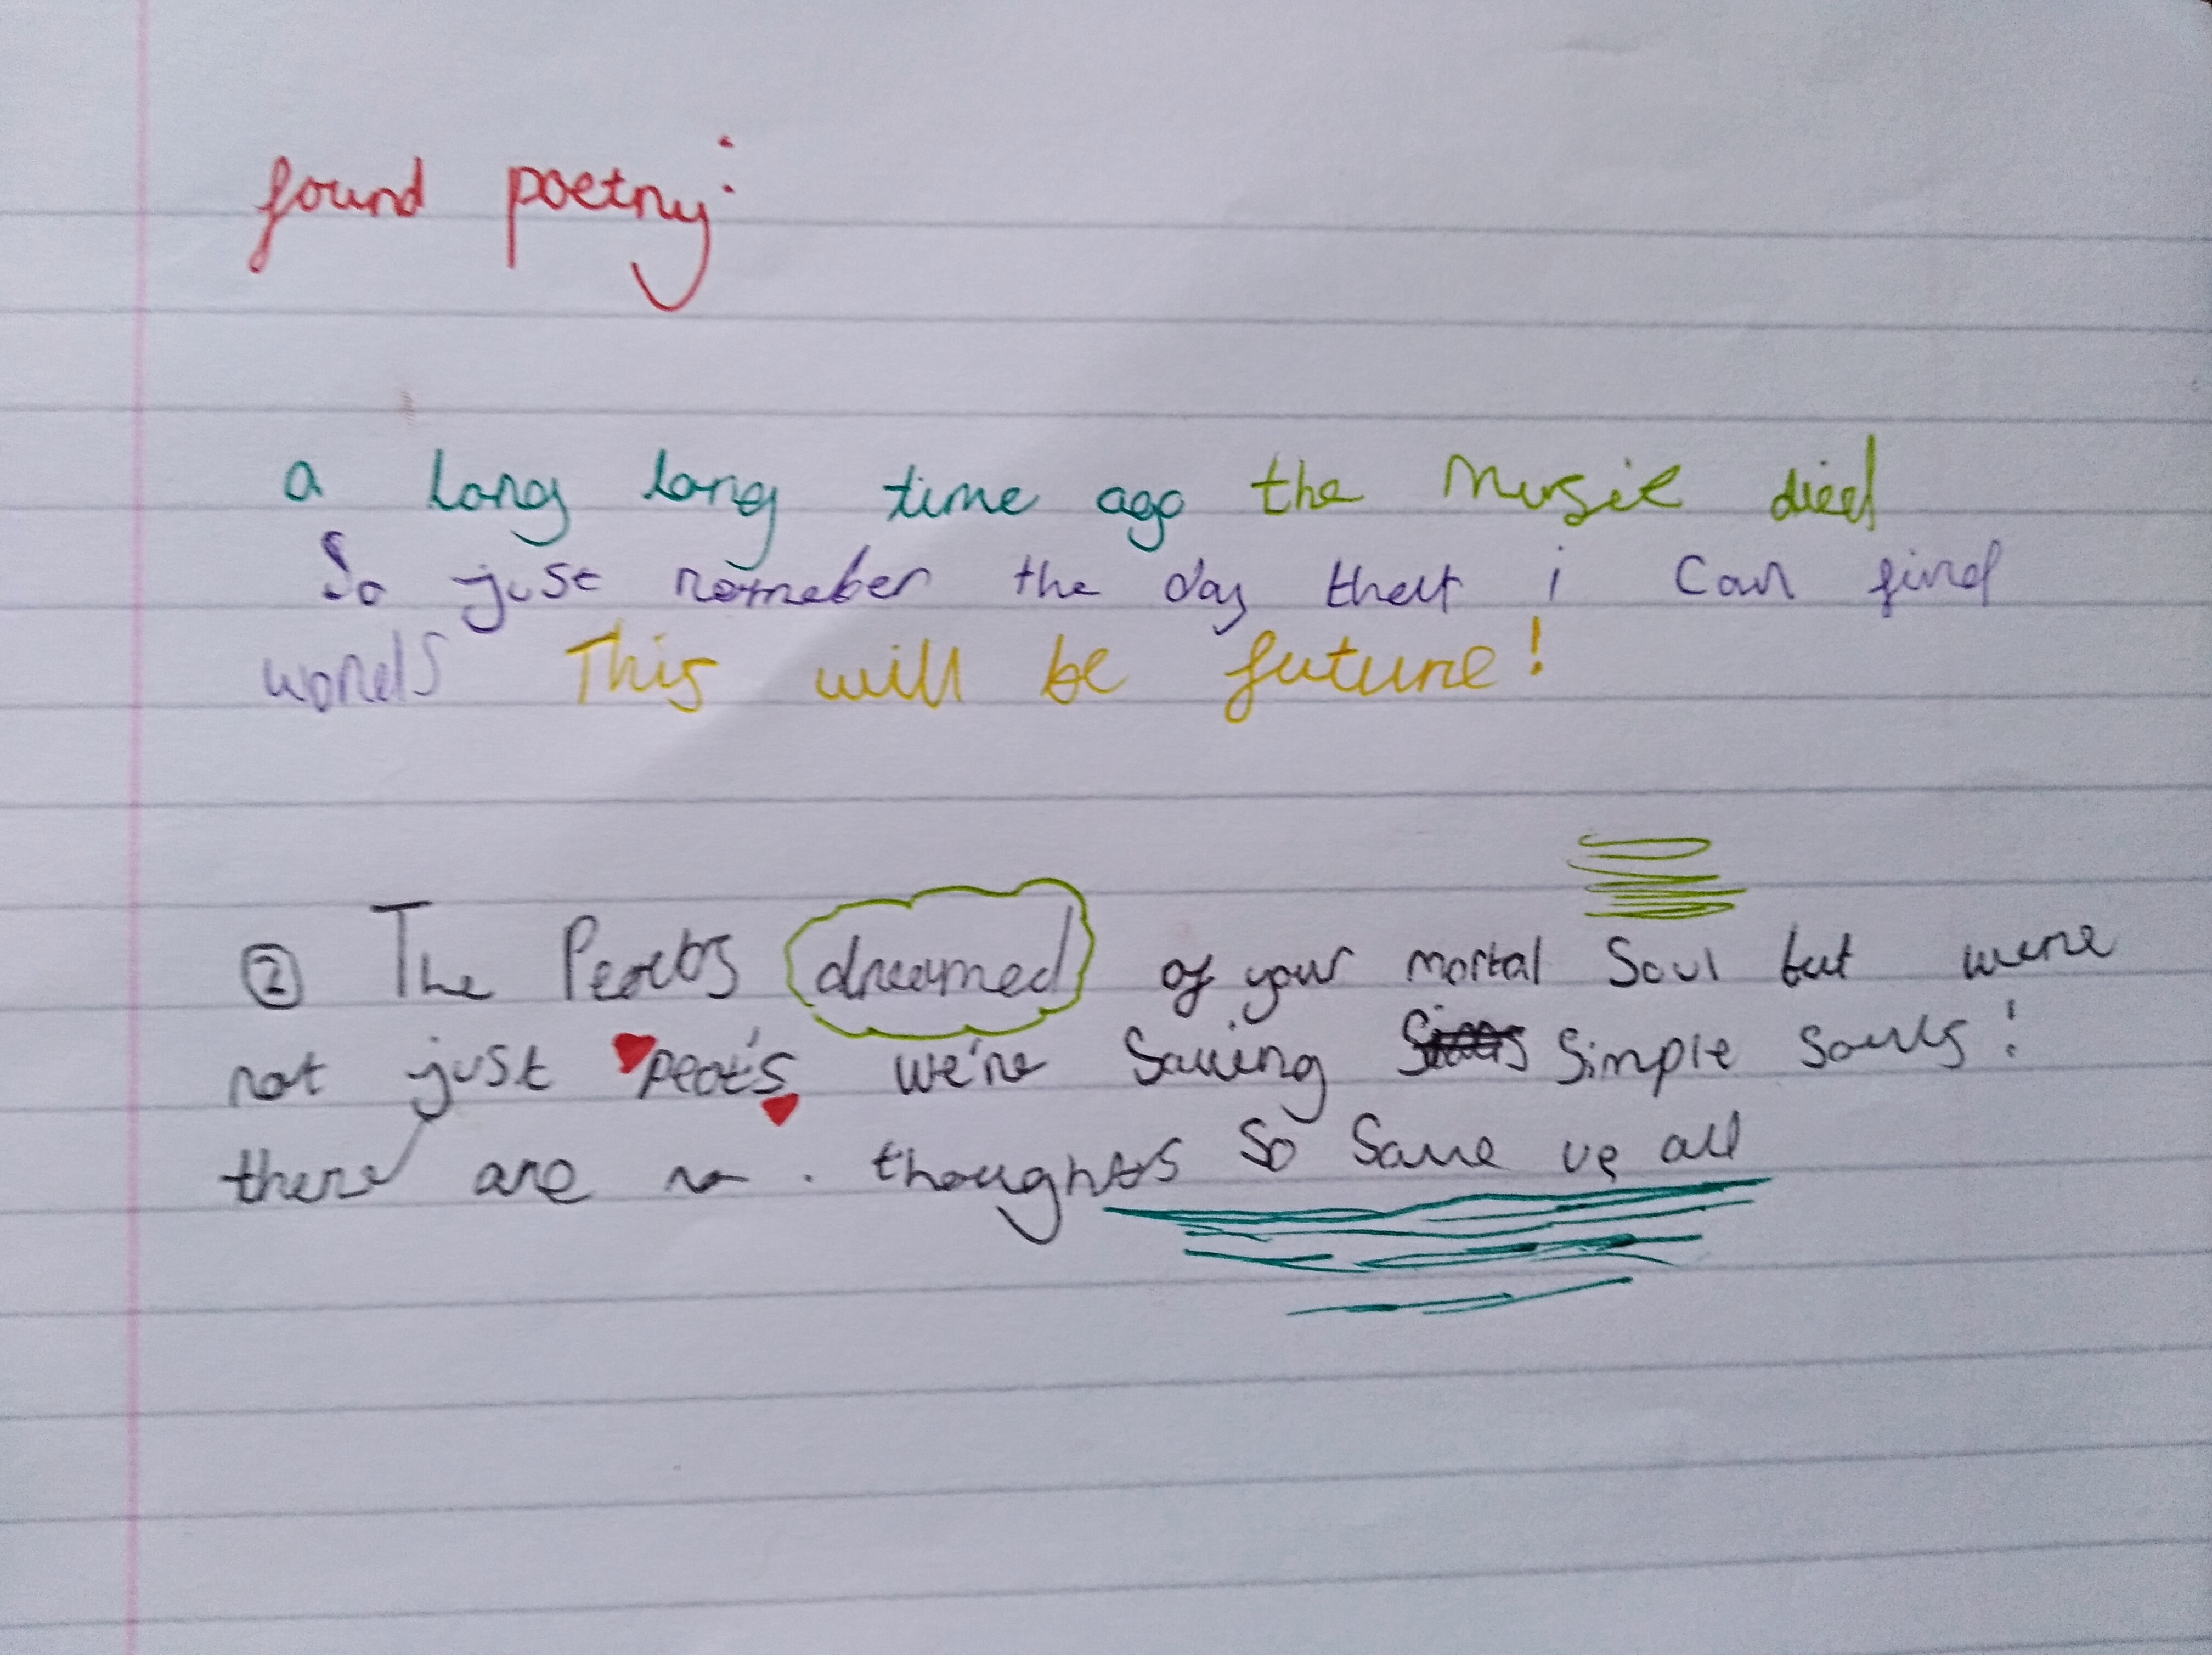 found poetry:
a long long time ago the music died
So just remeber the day that i can find
words This will be future!
② The Peotos dreamed of your mortal soul but were
not just peot's we're saving simple souls!
there are no . thoughts so save us all